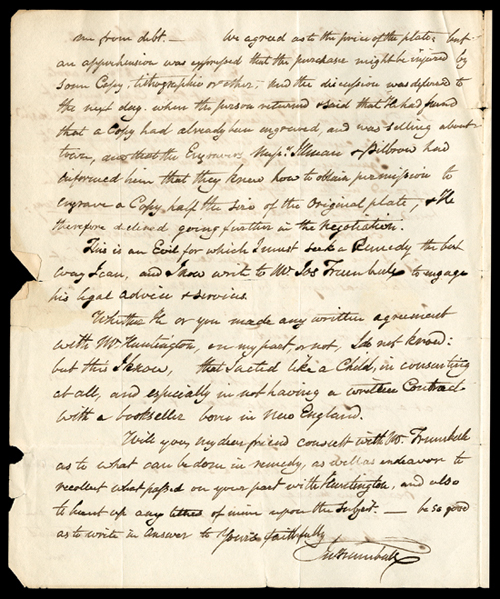 me from debt. — We agreed as to the price of the plate: but
an apprehension was expressed that the purchase might be injured by
some Copy, lithographic or other, and the discussion was deferred to
the next day. when the person returned & said that he had found
that a Copy had already been engraved, and was selling about
town, and that the Engravers Messrs. Illman & Pilbrow had
informed him that they knew how to obtain permission to
engrave a Copy half the size of the Original plate, & He
therefore declined going further in the negotiation.
This is an Evil for which I must seek a Remedy the best
way I can, and I now write to Mr. Jos Trumbull to engage
his legal advice & services
Whether He or you made any written agreement
with Mr. Huntington, on my part, or not, I do not know:
but this I know, that I acted like a Child, in consenting
at all, and especially in not having a written Contract
with a bookseller born in New England.
Will you, my dear friend consult with Mr. Trumbull
as to what can be done in remedy, as well as endeavor to
recollect what passed on your part with Huntington, and also
to hunt up any letters of mine upon the subject. — be so good
as to write in answer to Yours faithfully
Jn Trumbull